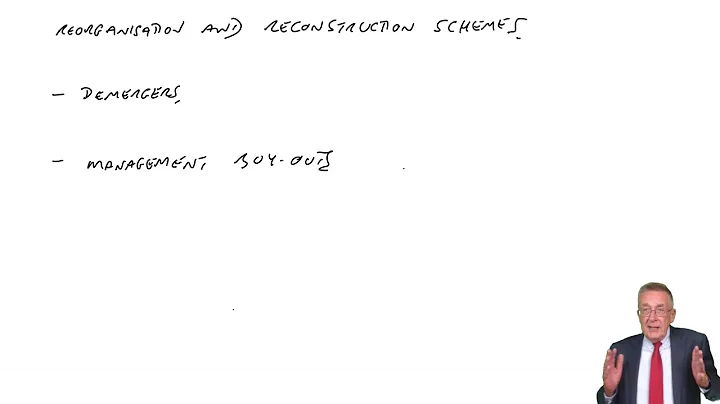 REORGANISATION AND RECONSTRUCTION SCHEMES
- DEMERGERS
- MANAGEMENT BUY-OUTS